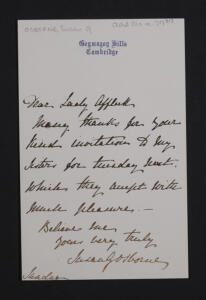 OSBORNE, Susan G
Gogmagog Hills
Cambridge
Dear Lady Affleck
Many thanks for your
kind invitation to my
sisters for Tuesday next.
Which they accept with
much pleasure —
Believe me
yours very truly
Susan G Osborne
Sunday